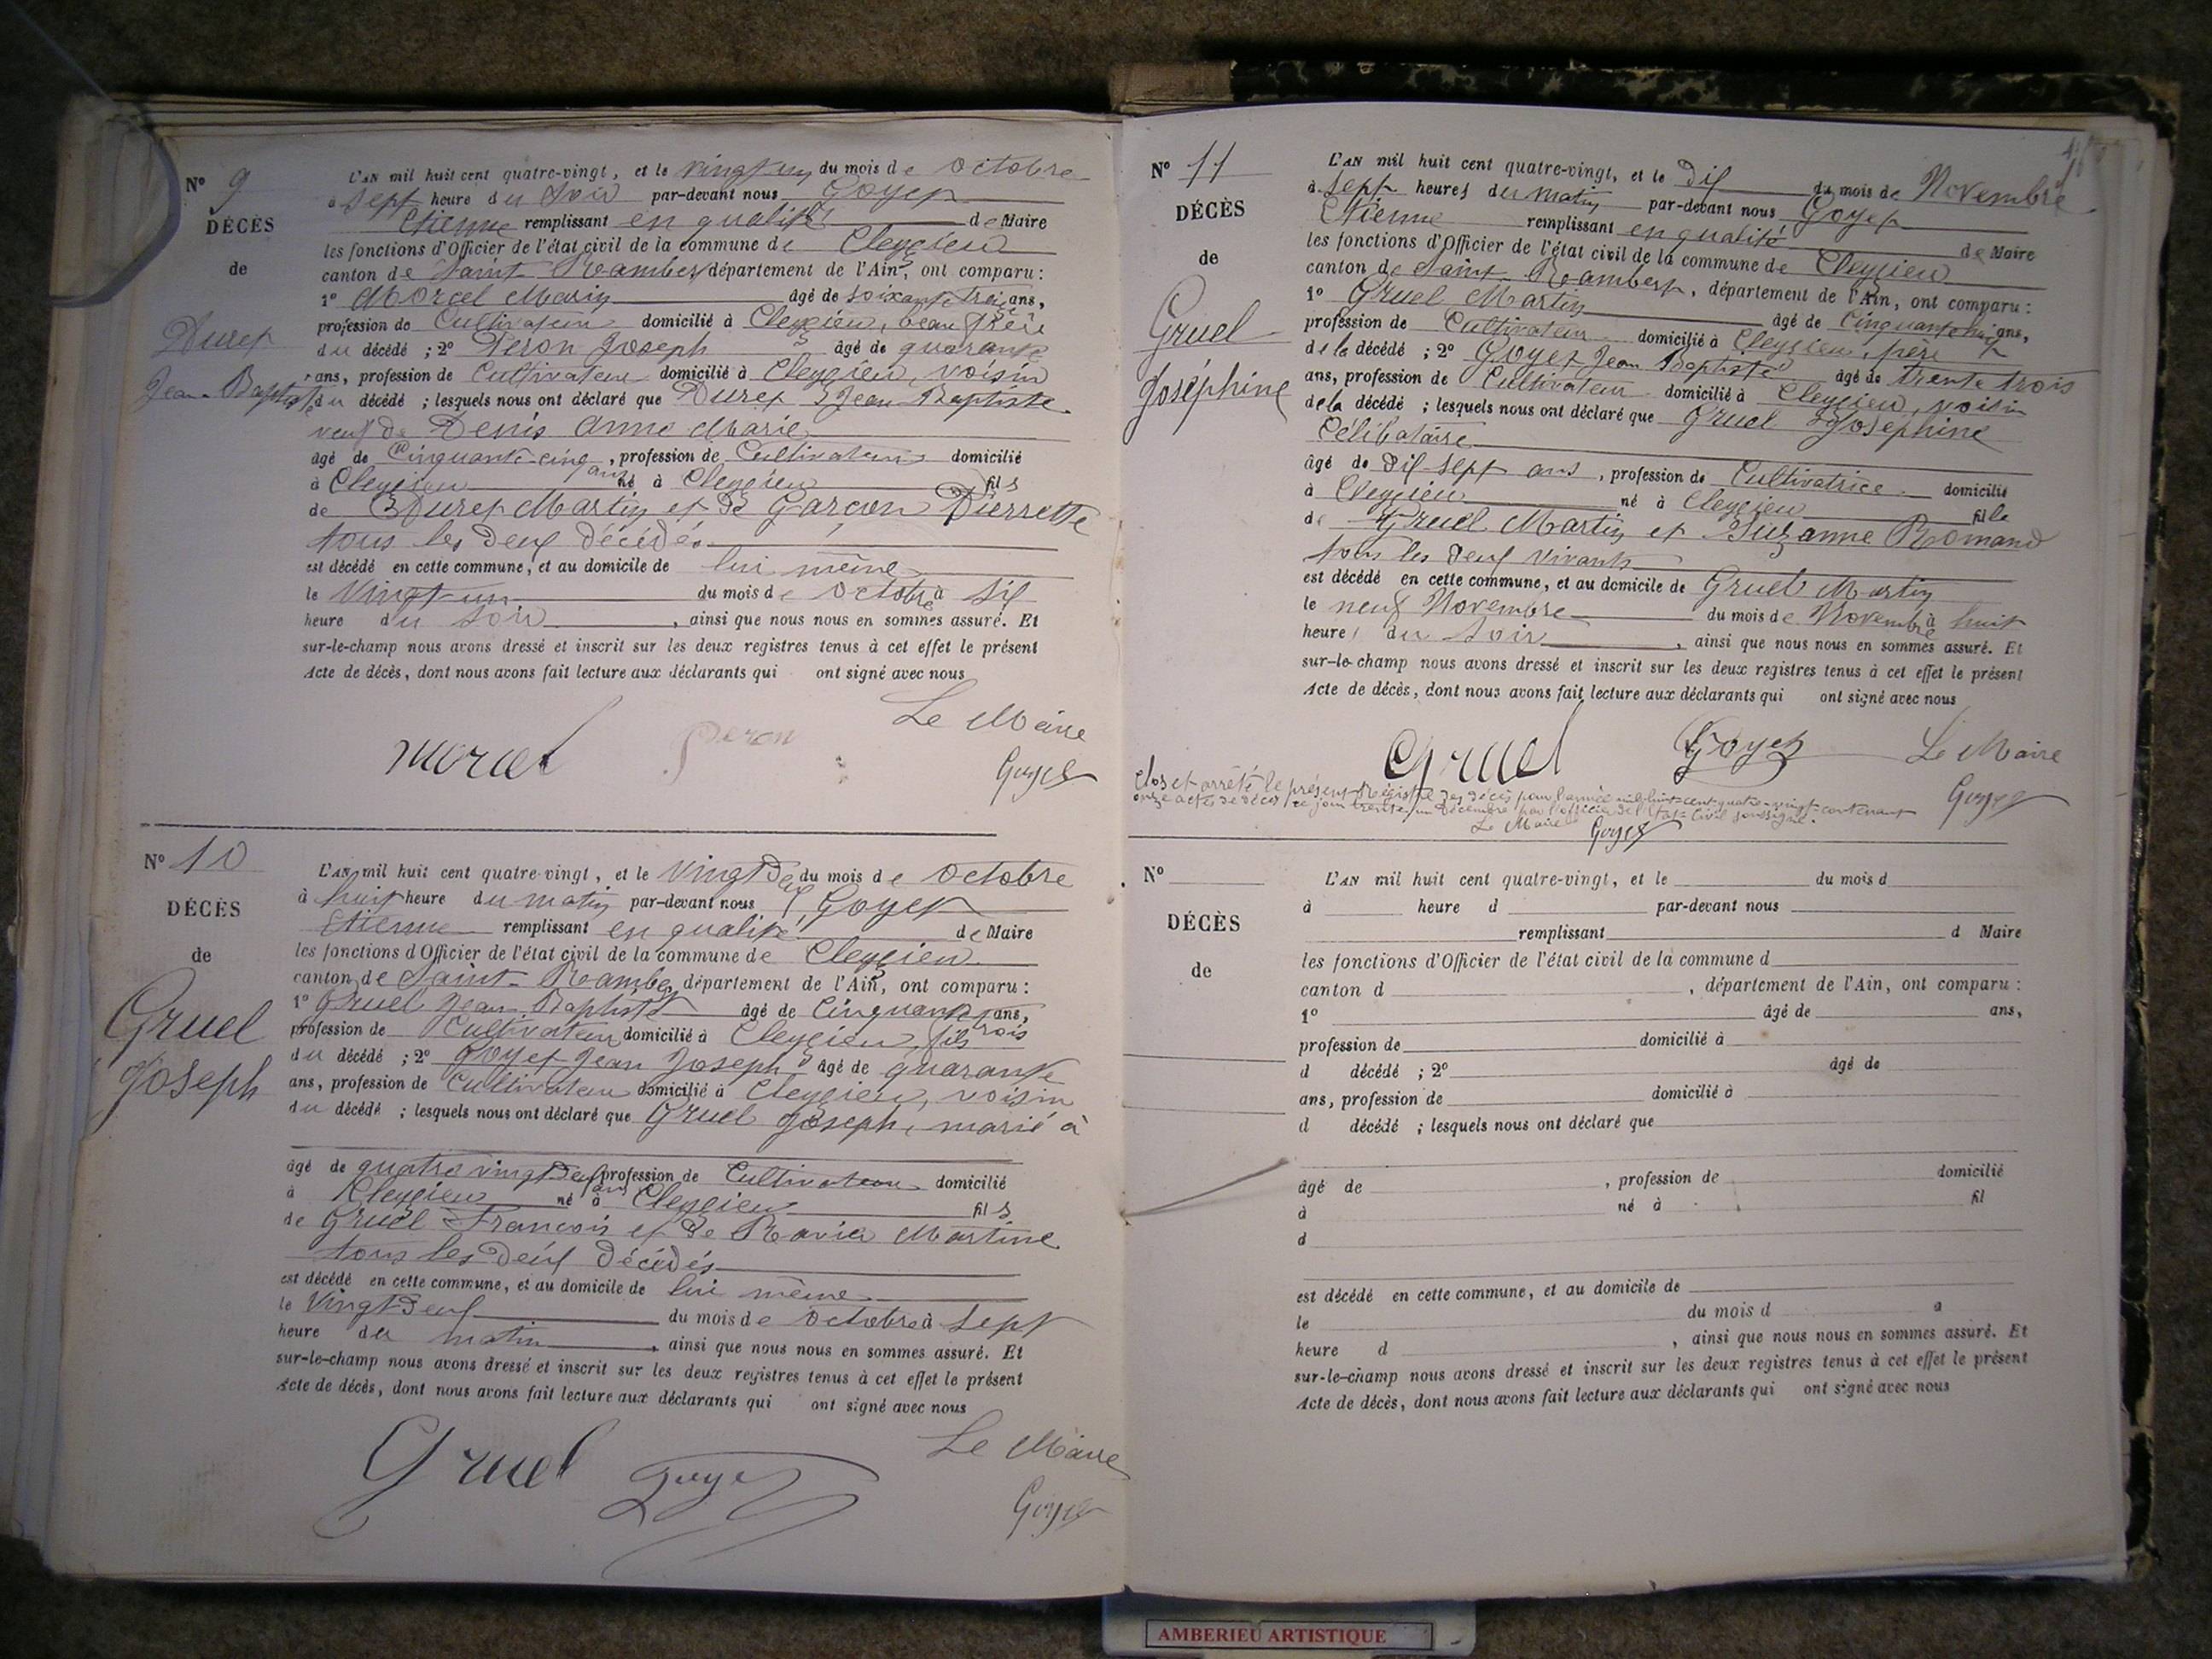 N° 9
DÉCÈS
de
Duret
Jean-Baptiste
L'AN mil huit cent quatre-vingt, et le vingt un du mois de octobre
à sept heure du soir par-devant nous Goyet
Etienne remplissant en qualité de Maire
les fonctions d'Officier de l'état civil de la commune de Cleyzieu
canton de Saint-Rambert département de l'Ain, ont comparu :
1° Morcel Marin âgé de soixante trois ans,
profession de Cultivateur domicilié à Cleyzieu, beau frère
du décédé ; 2° Peron Joseph âgé de quarante
ans, profession de Cultivateur domicilié à Cleyzieu, voisin
du décédé ; lesquels nous ont déclaré que Duret Jean-Baptiste
veuf de Denis Anne Marie
âgé de Cinquante-cinq ans, profession de Cultivateur domicilié
à Cleyzieu né à Cleyzieu fils
de Duret Martin et de Garcon Pierrette
tous les deux décédés
est décédé en cette commune, et au domicile de lui même
le Vingt un du mois de octobre à six
heure du soir, ainsi que nous nous en sommes assuré. Et
sur-le-champ nous avons dressé et inscrit sur les deux registres tenus à cet effet le présent
Acte de décès, dont nous avons fait lecture aux déclarants qui ont signé avec nous
Le Maire
Morcel Peron Goyet
N° 10
DÉCÈS
de
Gruel
Joseph
L'AN mil huit cent quatre-vingt, et le Vingt Deux du mois de octobre
à huit heure du matin par-devant nous Goyet
Etienne remplissant en qualité de Maire
les fonctions d'Officier de l'état civil de la commune de Cleyzieu
canton de Saint-Rambert département de l'Ain, ont comparu :
1° Gruel Jean Baptiste âgé de Cinquante trois ans,
profession de Cultivateur domicilié à Cleyzieu, fils
du décédé ; 2° Goyet Jean Joseph âgé de quarante
ans, profession de Cultivateur domicilié à Cleyzieu, voisin
du décédé ; lesquels nous ont déclaré que Gruel Joseph, marié à
âgé de quatre vingt Deux ans profession de Cultivateur domicilié
à Cleyzieu né à Cleyzieu fils
de Gruel Francois et de Ravier Martine
tous les deux décédés
est décédé en cette commune, et au domicile de lui même
le Vingt Deux du mois de octobre à sept
heure du matin, ainsi que nous nous en sommes assuré. Et
sur-le-champ nous avons dressé et inscrit sur les deux registres tenus à cet effet le présent
Acte de décès, dont nous avons fait lecture aux déclarants qui ont signé avec nous
Le Maire
Gruel Goyet Goyet
N° 11
DÉCÈS
de
Gruel
Joséphine
L'AN mil huit cent quatre-vingt, et le Dix du mois de Novembre
à sept heures du matin par-devant nous Goyet
Etienne remplissant en qualité de Maire
les fonctions d'Officier de l'état civil de la commune de Cleyzieu
canton de Saint Rambert, département de l'Ain, ont comparu :
1° Gruel Martin âgé de Cinquante huit ans,
profession de Cultivateur domicilié à Cleyzieu, père
de la décédé ; 2° Goyet Jean Baptiste âgé de trente trois
ans, profession de Cultivateur domicilié à Cleyzieu, voisin
de la décédé ; lesquels nous ont déclaré que Gruel Joséphine
Célibataire
âgé de Dix-sept ans, profession de Cultivatrice domicilié
à Cleyzieu né à Cleyzieu fille
de Gruel Martin et Suzanne Romand
tous les deux vivants
est décédé en cette commune, et au domicile de Gruel Martin
le neuf Novembre du mois de Novembre à huit
heures du soir, ainsi que nous nous en sommes assuré. Et
sur-le-champ nous avons dressé et inscrit sur les deux registres tenus à cet effet le présent
Acte de décès, dont nous avons fait lecture aux déclarants qui ont signé avec nous
Gruel Goyet Le Maire
Goyet
Clos et arrêté le présent Registre des décès pour l'année mil huit cent quatre-vingt contenant
onze actes de décès ce jour trente un décembre par l'officier de l'état-civil soussigné.
Le Maire Goyet
N°
DÉCÈS
de
L'AN mil huit cent quatre-vingt, et le du mois d
à heure d par-devant nous
remplissant d Maire
les fonctions d'Officier de l'état civil de la commune d
canton d , département de l'Ain, ont comparu :
1° âgé de ans,
profession de domicilié à
d décédé ; 2° âgé de
ans, profession de domicilié à
d décédé ; lesquels nous ont déclaré que
âgé de , profession de domicilié
à né à fil
d
est décédé en cette commune, et au domicile de
le du mois d à
heure d , ainsi que nous nous en sommes assuré. Et
sur-le-champ nous avons dressé et inscrit sur les deux registres tenus à cet effet le présent
Acte de décès, dont nous avons fait lecture aux déclarants qui ont signé avec nous
AMBERIEU ARTISTIQUE